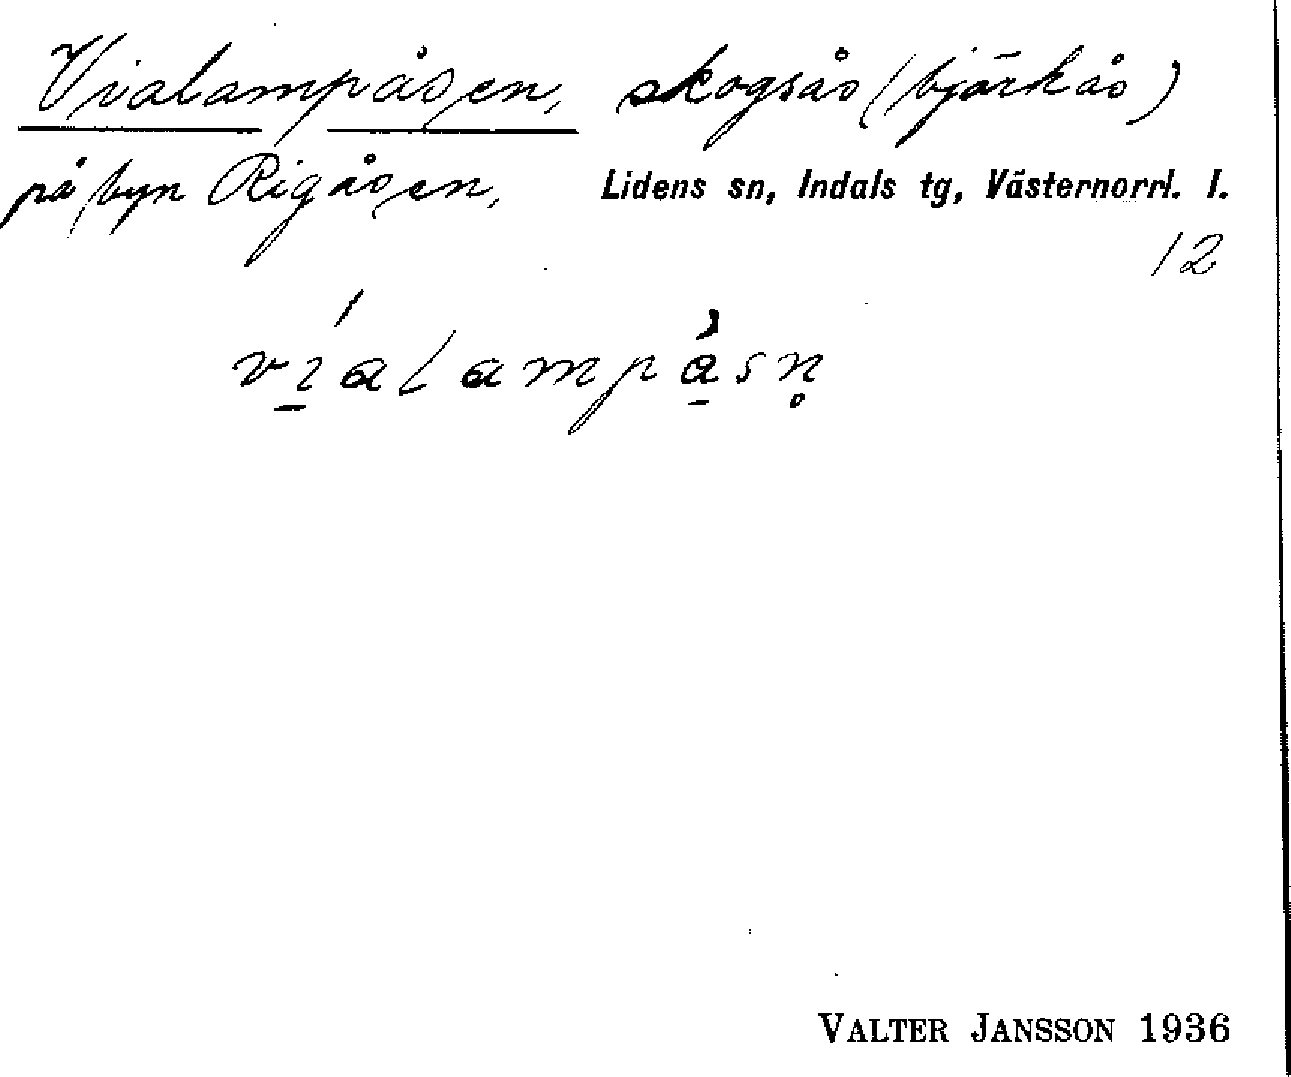 Vialampåsen, skogsås (björkås)
på byn Rigåsen, Lidens sn, Indals tg, Västernorrl. l.
12
vɪ̱́alampå̱sn̥
VALTER JANSSON 1936